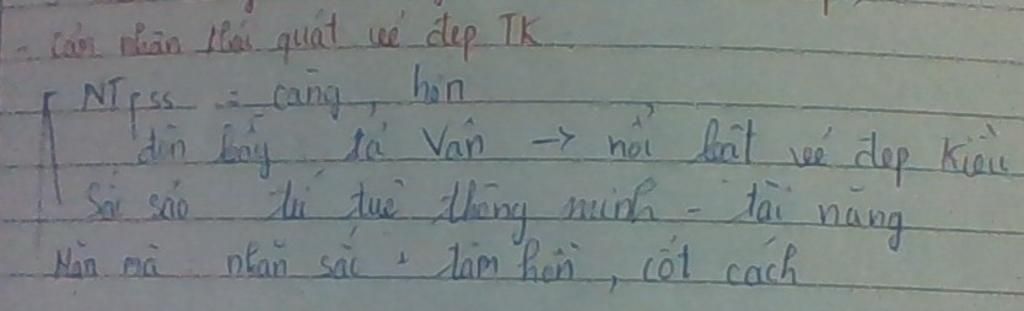 - Cảm nhận khái quát vẻ đẹp TK
NT ss : càng, hơn
đòn bẩy tả Vân → nổi bật vẻ đẹp Kiều
Sắc sảo trí tuệ thông minh - tài năng
Mặn mà nhan sắc + tâm hồn, cốt cách